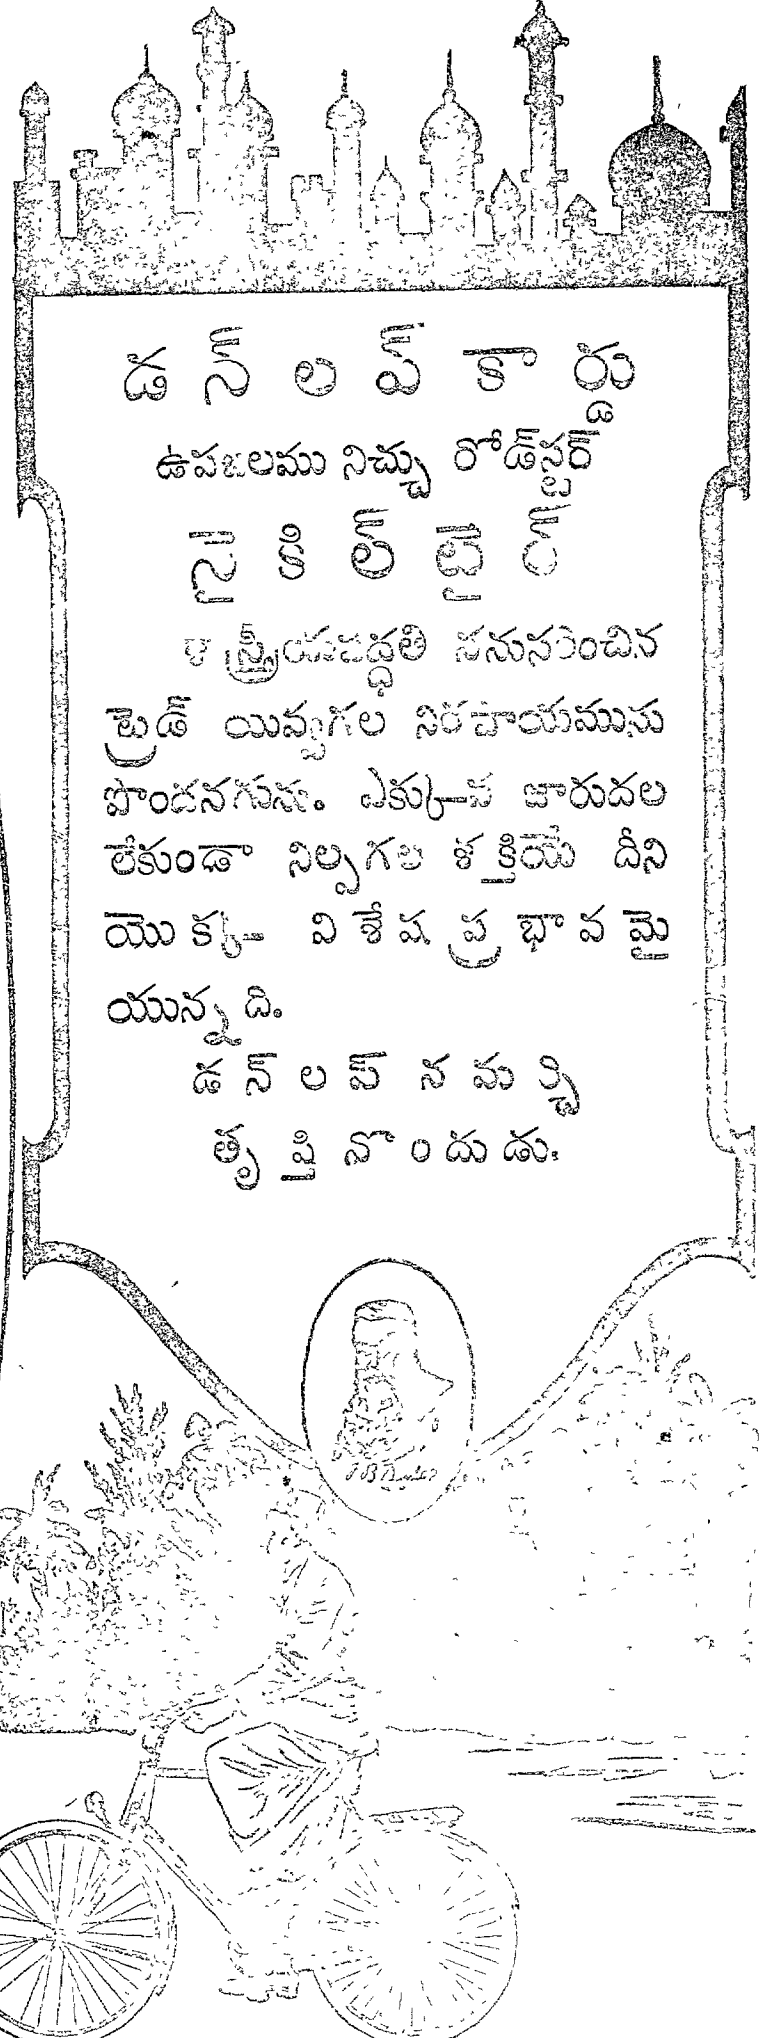 డన్‌లప్ కార్డు
ఉపబలము నిచ్చు రోడ్‌స్టర్
సైకిల్ టైర్
శాస్త్రీయపద్ధతి ననుసరించిన
ట్రెడ్ యివ్వగల నిరపాయమును
పొందనగును. ఎక్కువ జారుదల
లేకుండా నిల్పగల శక్తియే దీని
యొక్క విశేష ప్రభావమై
యున్నది.
డన్‌లప్ నమర్చి
తృప్తి నొందుడు.